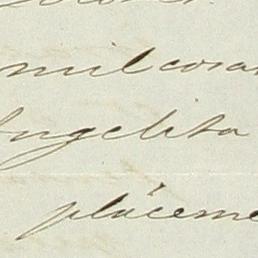 mil cosas
Angelita
pláceme